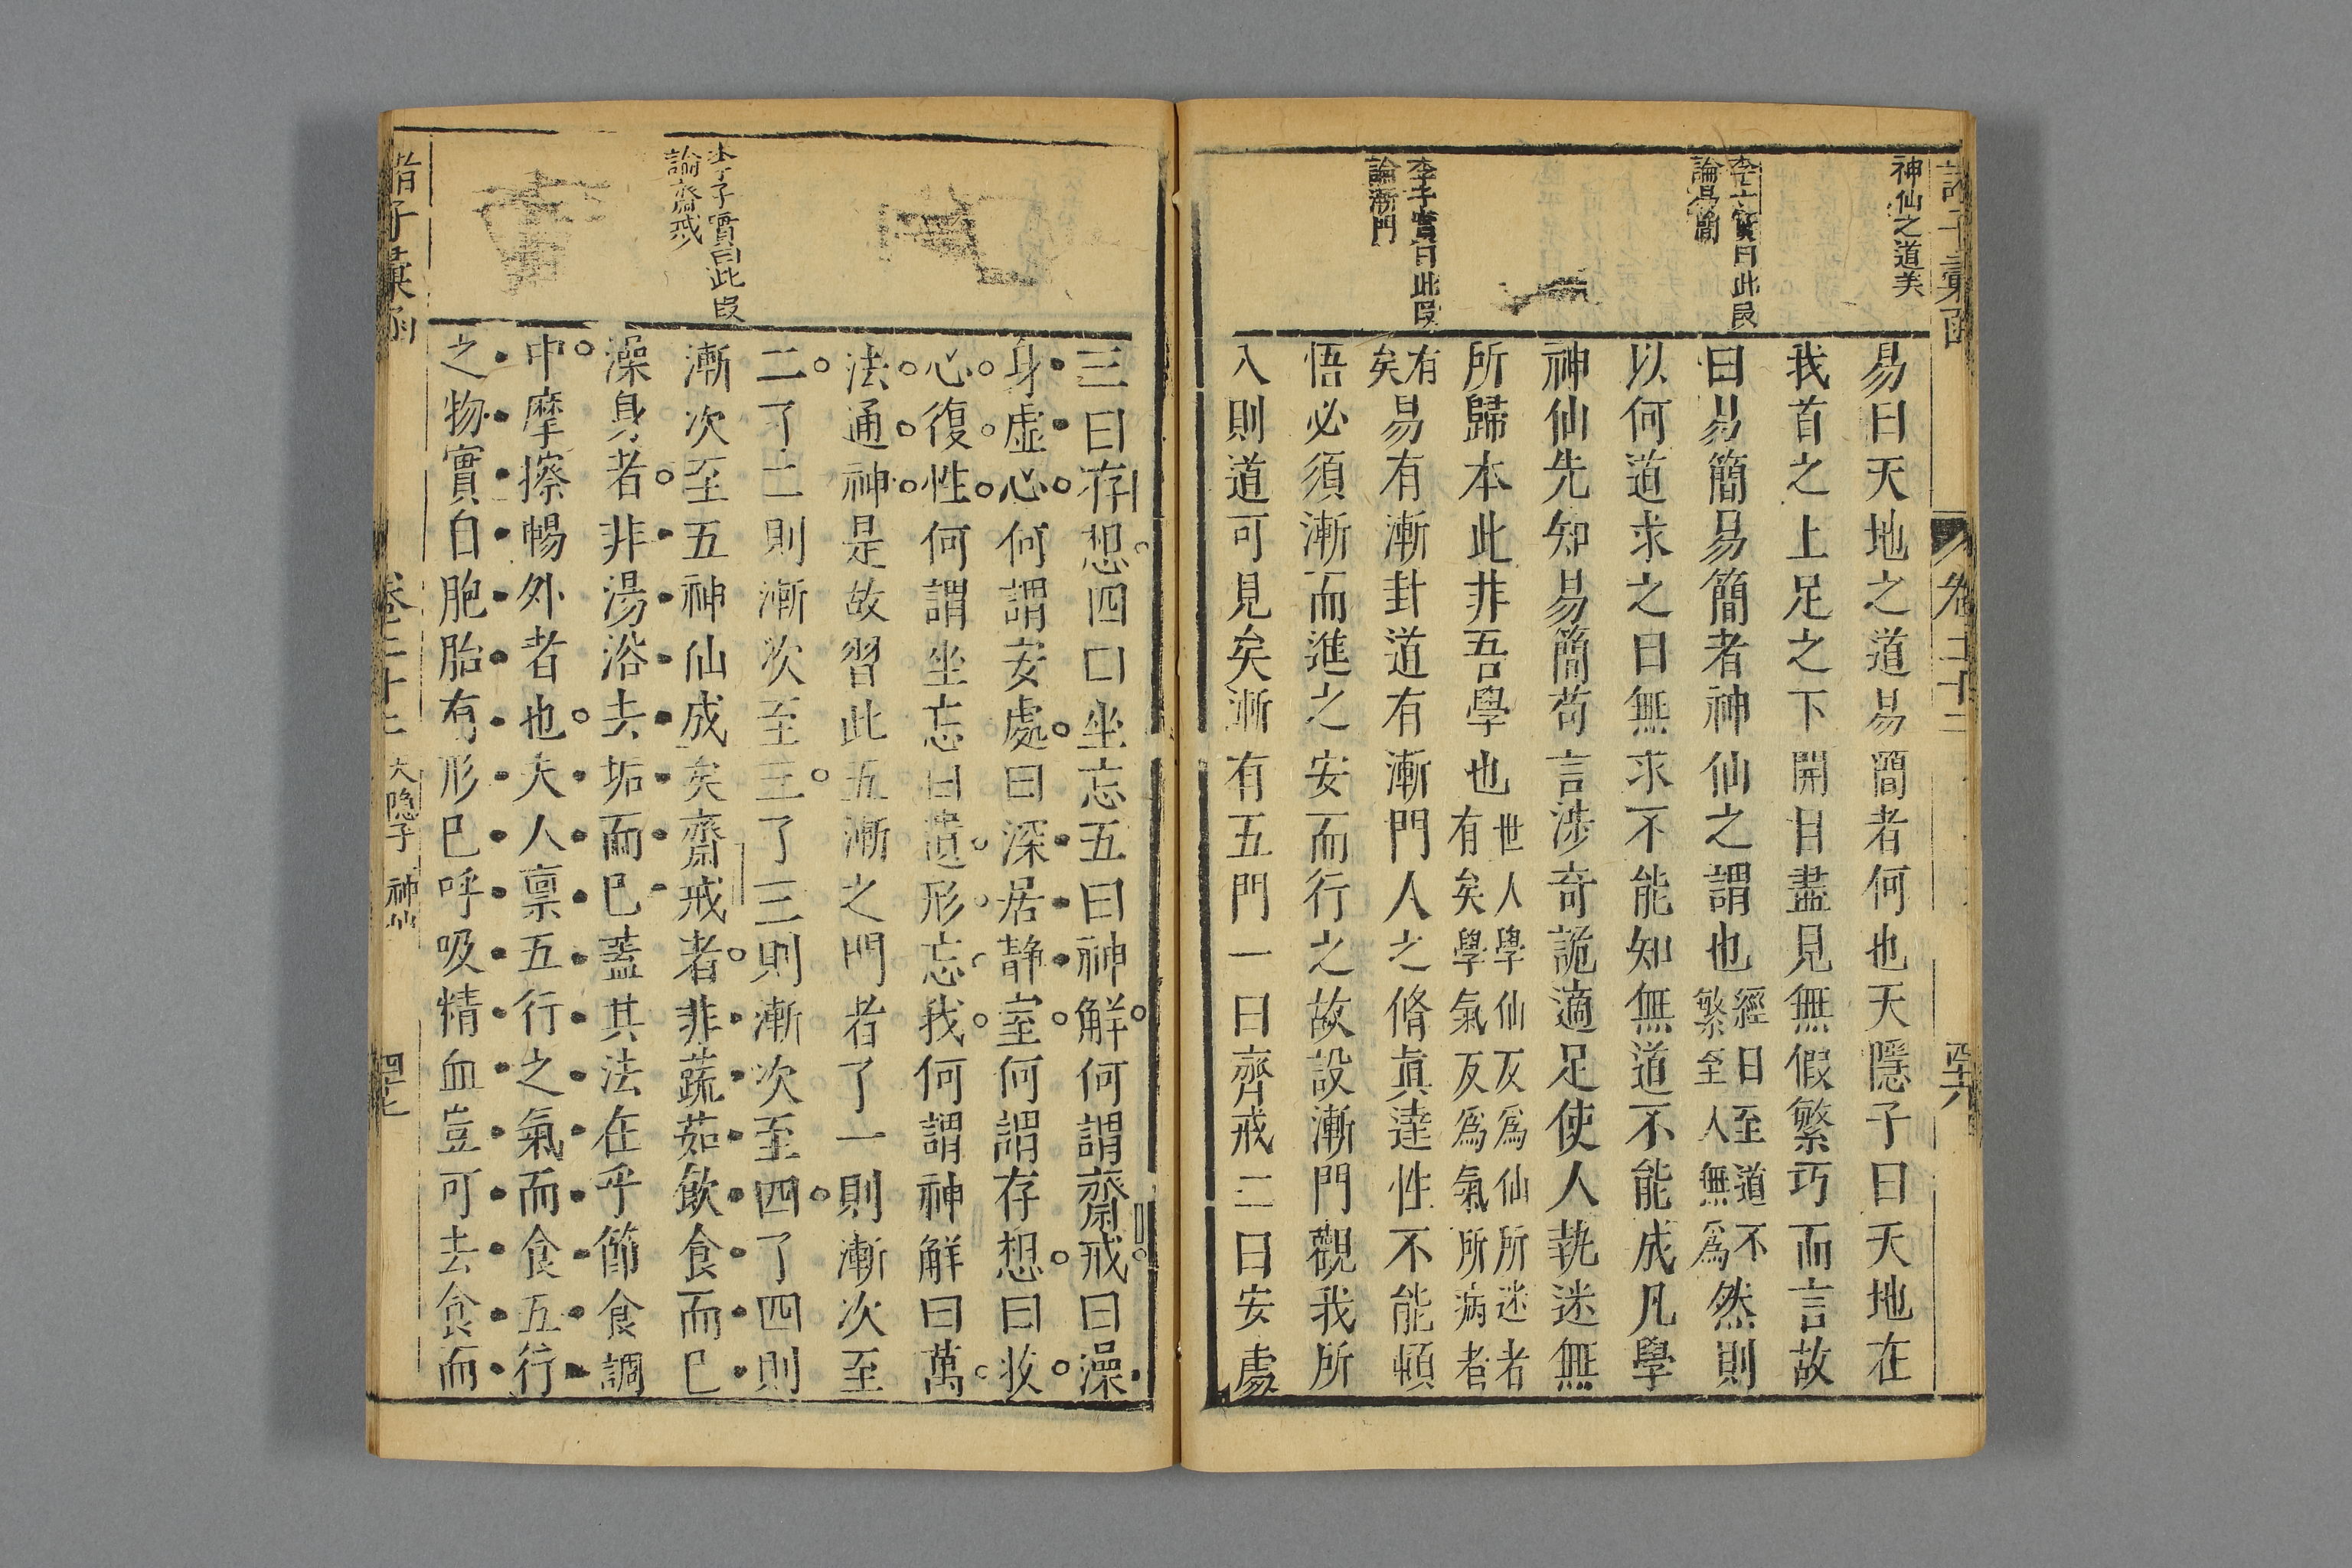 諸子彙函
卷二十二
神仙之道美
李子實曰此段
論易簡
李子實曰此段
論漸門
易曰天地之道易簡者何也天隱子曰天地在
我首之上足之下開目盡見無假繁巧而言故
曰易簡易簡者神仙之謂也經曰至道不繁至人無爲然則
以何道求之曰無求不能知無道不能成凡學
神仙先知易簡苟言涉奇詭適足使人執迷無
所歸本此非吾學也世人學仙反爲仙所迷者有矣學氣反爲氣所病者
有矣易有漸封道有漸門人之脩眞達性不能頓
悟必須漸而進之安而行之故設漸門觀我所
入則道可見矣漸有五門一曰齊戒二曰安處
李子實曰此段
論齋戒
三曰存想四曰坐忘五曰神解何謂齋戒曰澡
身虛心何謂安處曰深居静室何謂存想曰收
心復性何謂坐忘曰遺形忘我何謂神解曰萬
法通神是故習此五漸之門者了一則漸次至
二了二則漸次至三了三則漸次至四了四則
漸次至五神仙成矣齋戒者非蔬茹飲食而巳
澡身者非湯浴去垢而巳蓋其法在乎節食調
中摩擦暢外者也夫人禀五行之氣而食五行
之物實自胞胎有形巳呼吸精血豈可去食而
諸子彙函
卷二十二
天隐子
神仙
四七